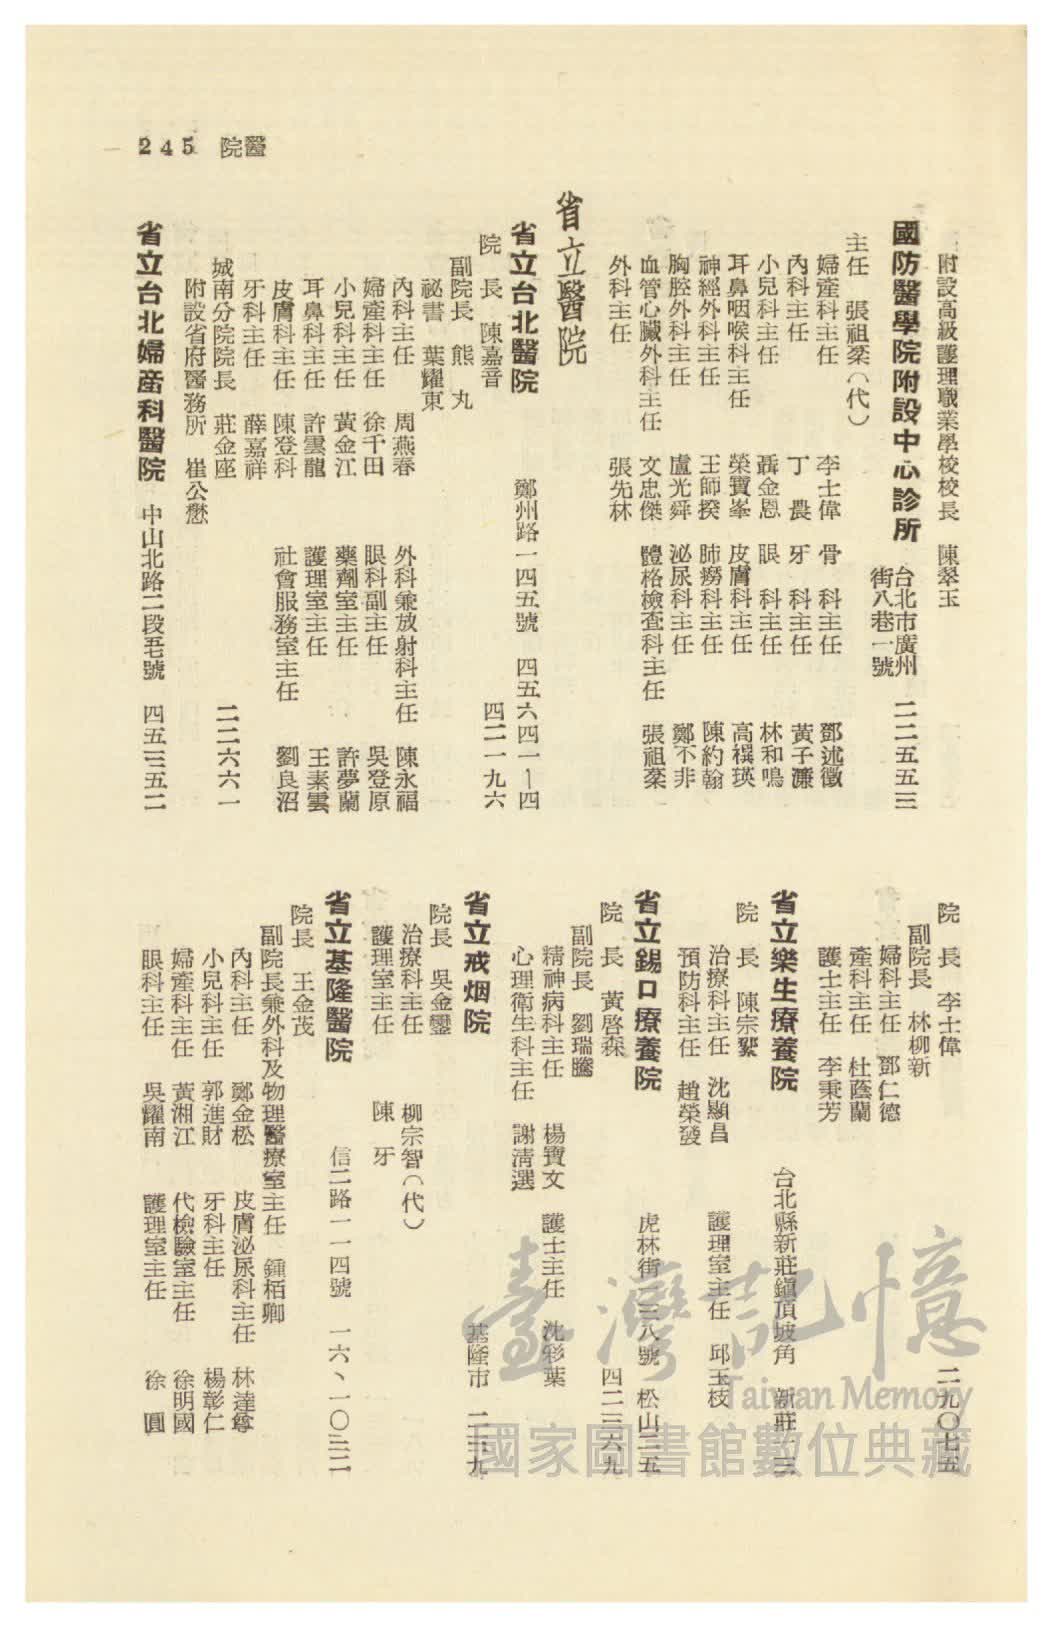 245 醫院
附設高級護理職業學校校長 陳翠玉
國防醫學院附設中心診所 台北市廣州街八巷一號 二二五五三
主任 張祖棻(代)
婦產科主任 李士偉 骨科主任 鄧述徵
內科主任 丁農 牙科主任 黃子濂
小兒科主任 聶金恩 眼科主任 林和鳴
耳鼻咽喉科主任 榮寶峯 皮膚科主任 高禩瑛
神經外科主任 王師揆 肺癆科主任 陳約翰
胸腔外科主任 盧光舜 泌尿科主任 鄭不非
血管心臟外科主任 文忠傑 體格檢查科主任 張祖棻
外科主任 張先林
省立醫院
省立台北醫院 鄭州路一四五號 四五六四一-四
院長 陳嘉音 四二一九六
副院長 熊丸
祕書 葉耀東
內科主任 周燕春 外科兼放射科主任 陳永福
婦產科主任 徐千田 眼科副主任 吳登原
小兒科主任 黃金江 藥劑室主任 許夢蘭
耳鼻科主任 許雲龍 護理室主任 王素雲
皮膚科主任 陳登科 社會服務室主任 劉良沼
牙科主任 薛嘉祥
城南分院院長 莊金座 二二六六一
附設省府醫務所 崔公懋
省立台北婦產科醫院 中山北路二段五号號 四五三五二
院長 李士偉 二九〇七五
副院長 林柳新
婦科主任 鄧仁德
產科主任 杜蔭蘭
護士主任 李秉芳
省立樂生療養院 台北縣新莊鎮頂坡角 新莊一三
院長 陳宗鍪
治療科主任 沈顯昌 護理室主任 邱玉枝
預防科主任 趙榮發
省立錫口療養院 虎林街一三八號 松山二五
院長 黃啓森 四二三六九
副院長 劉瑞騰
精神病科主任 楊寶文 護士主任 沈彩葉
心理衛生科主任 謝淸選
省立戒烟院 基隆市 二三九
院長 吳金鑾
治療科主任 柳宗智(代)
護理室主任 陳牙
省立基隆醫院 信二路一一四號 一六、一〇三二
院長 王金茂
副院長兼外科及物理醫療室主任 鍾栢卿
內科主任 鄭金松 皮膚泌尿科主任 林達尊
小兒科主任 郭進財 牙科主任 楊彰仁
婦產科主任 黃湘江 代檢驗室主任 徐明國
眼科主任 吳耀南 護理室主任 徐圓
臺灣記憶
Taiwan Memory
國家圖書館數位典藏